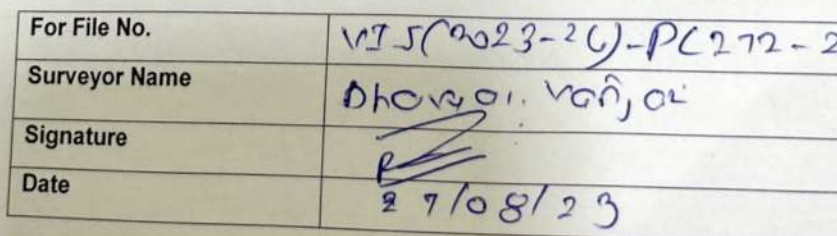 For File No. VIS(2023-24)-PL272-2
Surveyor Name Dhawal Vanjari
Signature
Date 27/08/23